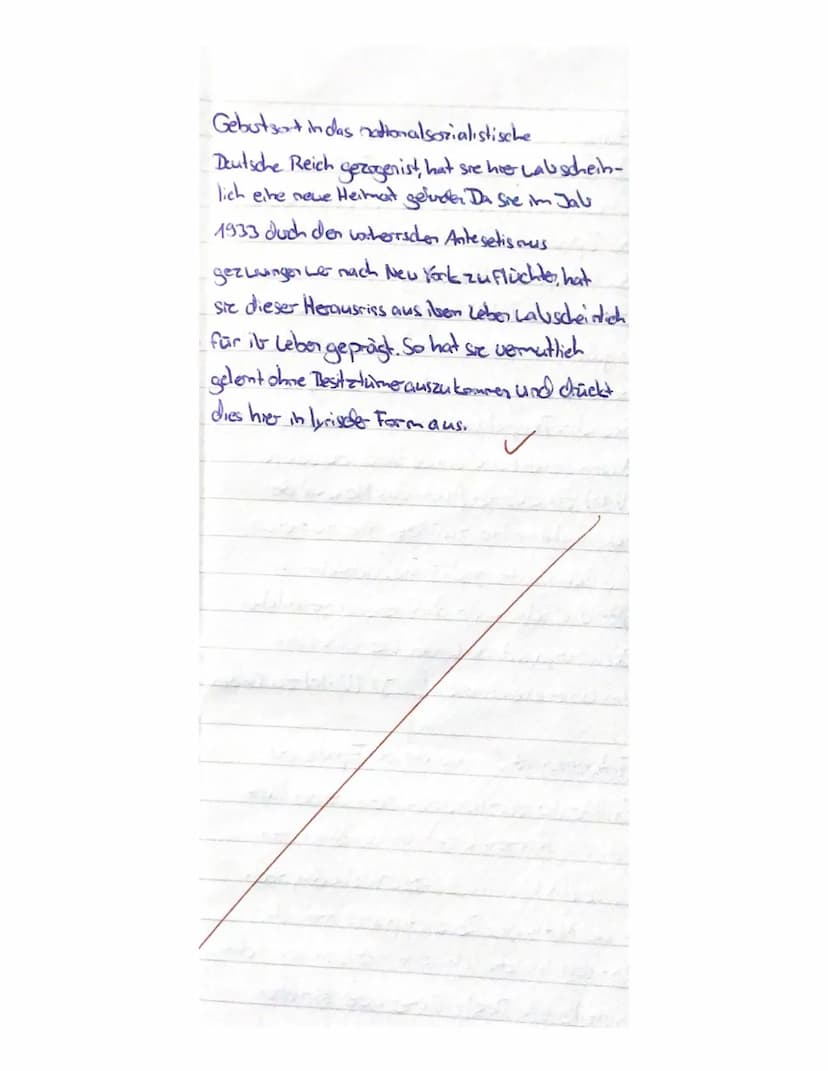 Geburtsort in das nationalsozialistische
Deutsche Reich gezogen ist, hat sie hier wahrschein-
lich eine neue Heimat gefunden. Da sie im Jahr
1933 durch den vorherrschen Antesetismus
gezwungen wer nach New York zu flüchten, hat
sie dieser Herausriss aus ihren Leben wahrscheinlich
für ihr Leben geprägt. So hat sie vermutlich
gelernt ohne Besitztümer auszukommen und drückt
dies hier in lyrischer Form aus.